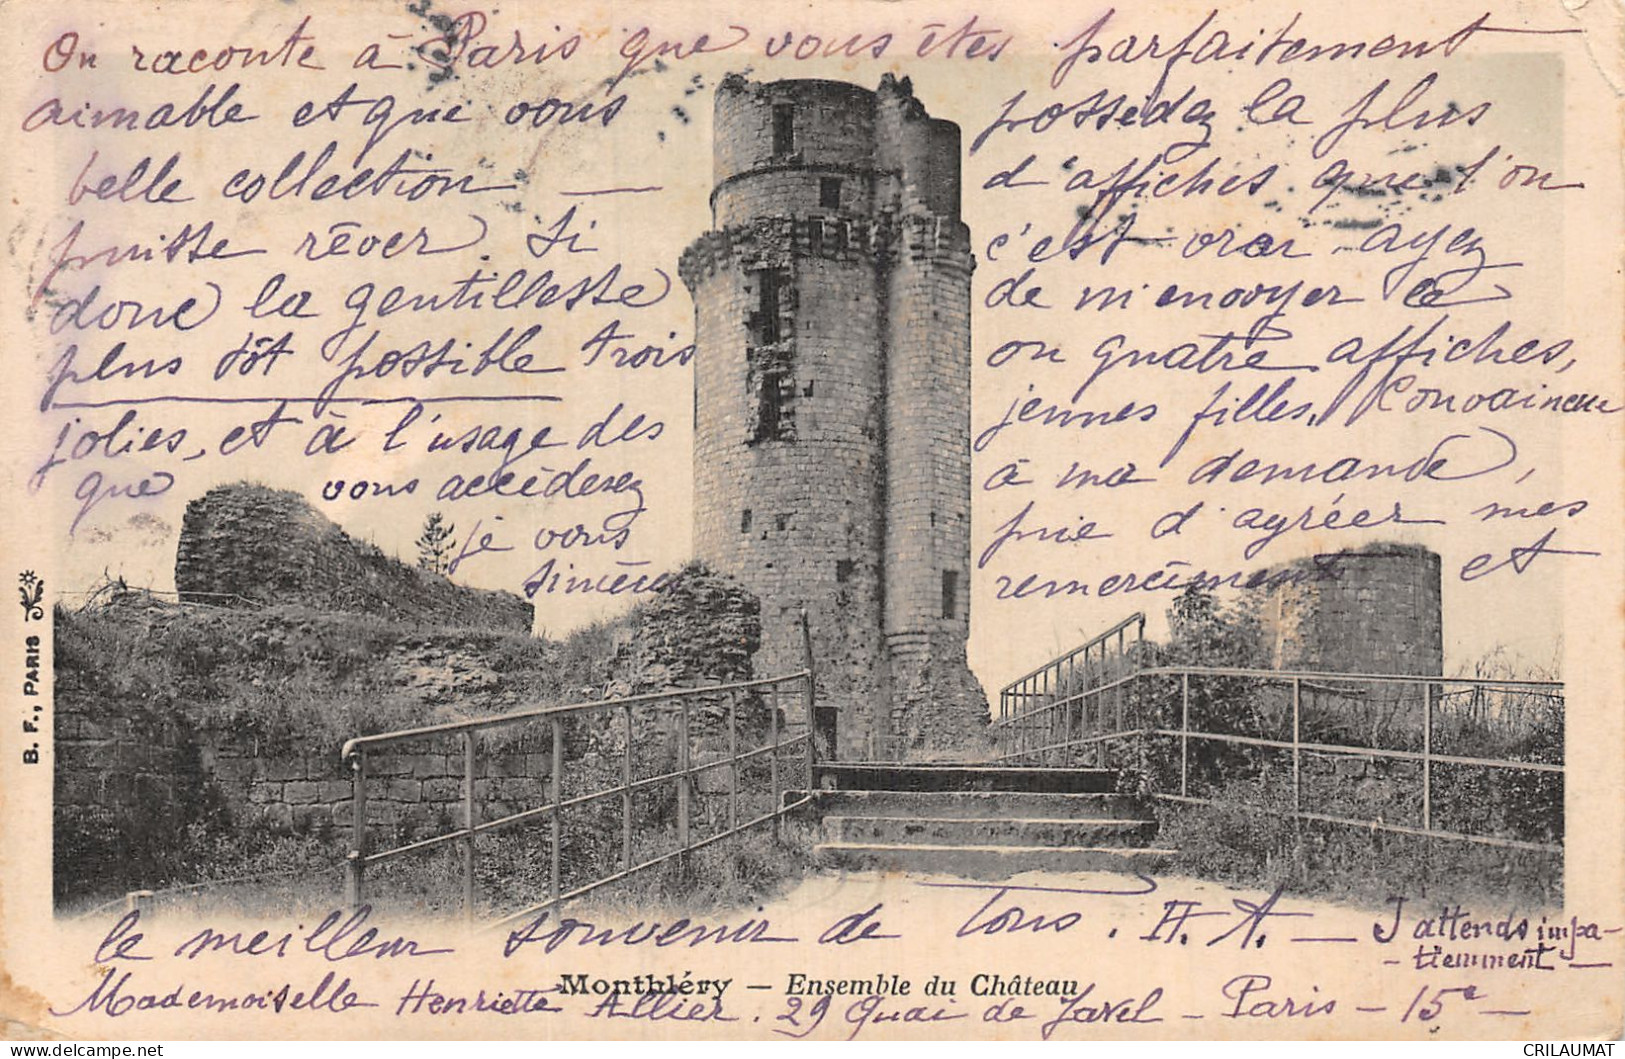 On raconte à Paris que vous êtes parfaitement
aimable et que vous possédez la plus
belle collection d'affiches que l'on
puisse rêver. Si c'est vrai ayez
donc la gentillesse de m'envoyer le
plus tôt possible trois ou quatre affiches,
jolies, et à l'usage des jeunes filles. Convaincue
que vous accéderez à ma demande,
je vous prie d'agréer mes
sincères remerciments et
le meilleur souvenir de tous. H. A. — J'attends impa-
- tiemment —
Monthléry — Ensemble du Château
Mademoiselle Henriette Allier. 29 Quai de Javel - Paris - 15e -
B. F., PARIS
CRILAUMAT